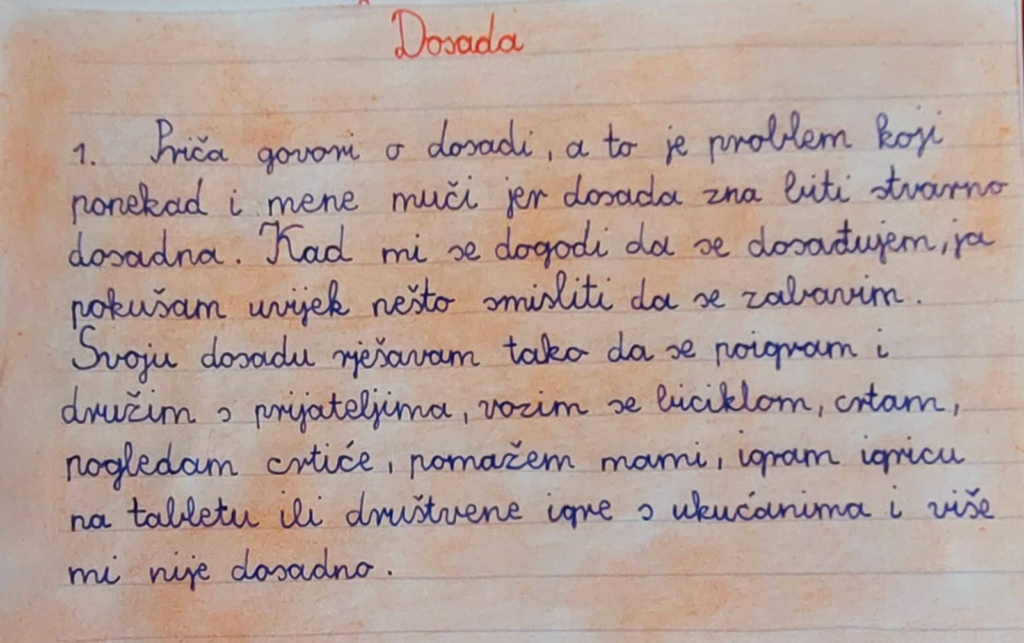 Dosada
1. Priča govori o dosadi, a to je problem koji
ponekad i mene muči jer dosada zna biti stvarno
dosadna. Kad mi se dogodi da se dosađujem, ja
pokušam uvijek nešto smisliti da se zabavim.
Svoju dosadu rješavam tako da se poigram i
družim s prijateljima, vozim se biciklom, crtam,
pogledam crtiće, pomažem mami, igram igricu
na tabletu ili društvene igre s ukućanima i više
mi nije dosadno.